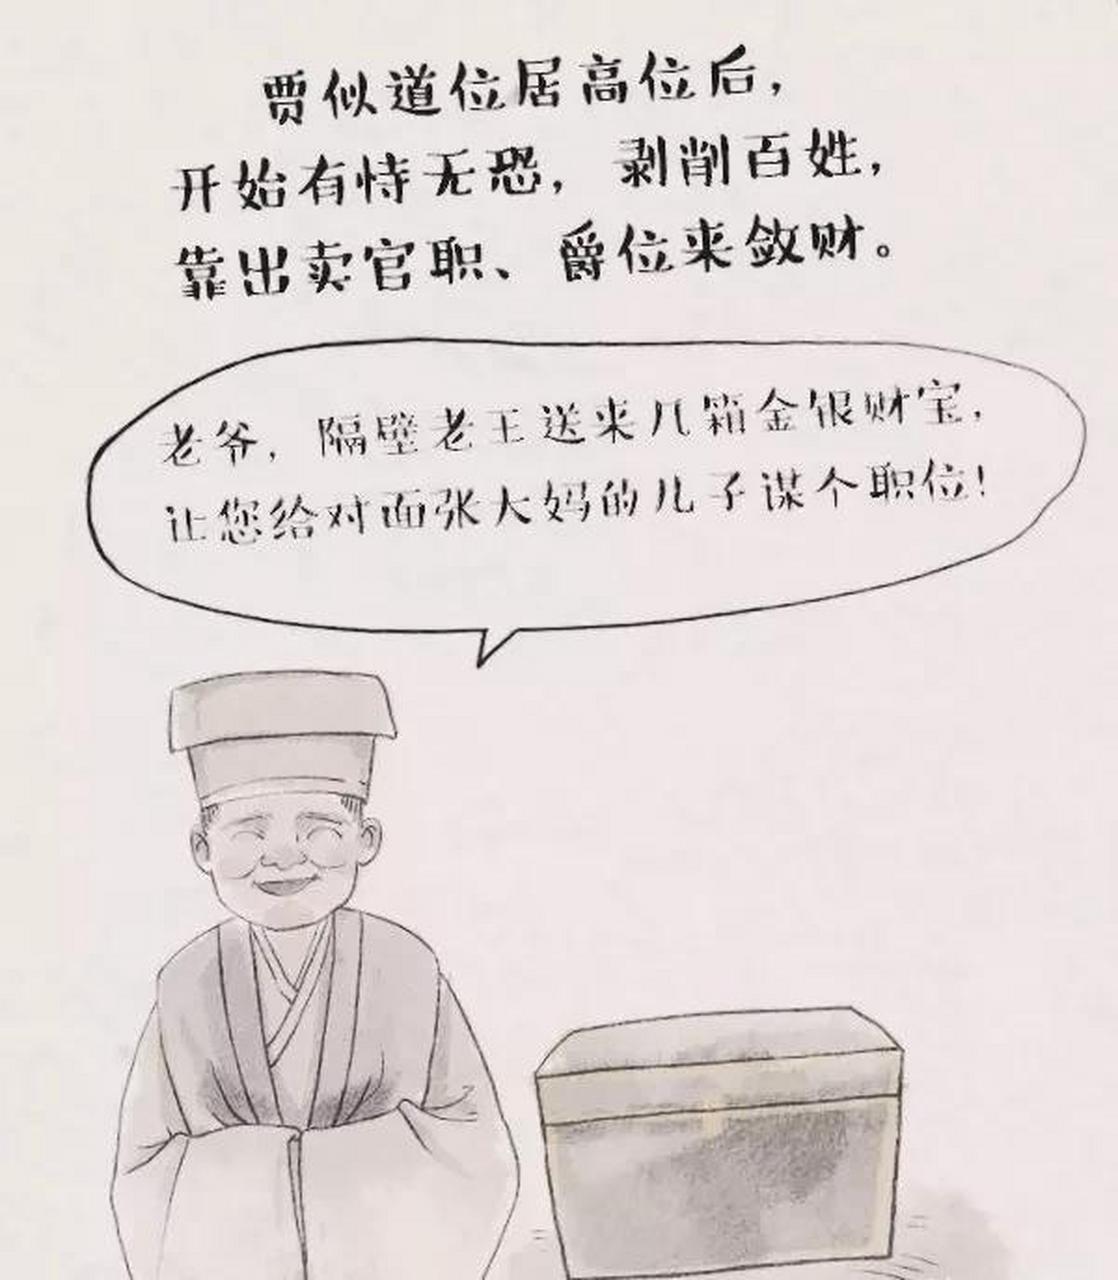 贾似道位居高位后，
开始有恃无恐，剥削百姓，
靠出卖官职、爵位来敛财。
老爷，隔壁老王送来几箱金银财宝，
让您给对面张大妈的儿子谋个职位！